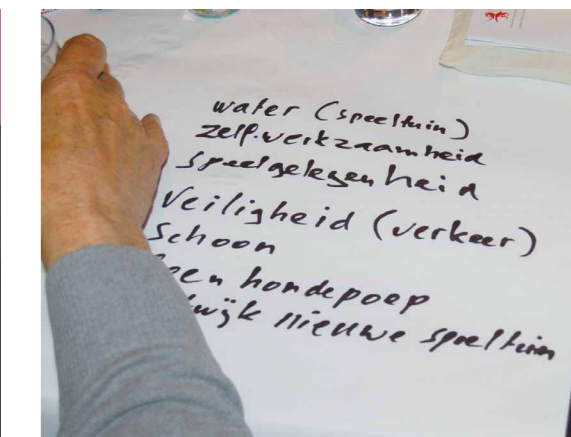 water (speeltuin)
zelf.werkzaamheid
speelgelegenheid
Veiligheid (verkeer)
Schoon
hondepoep
nieuwe speeltuin